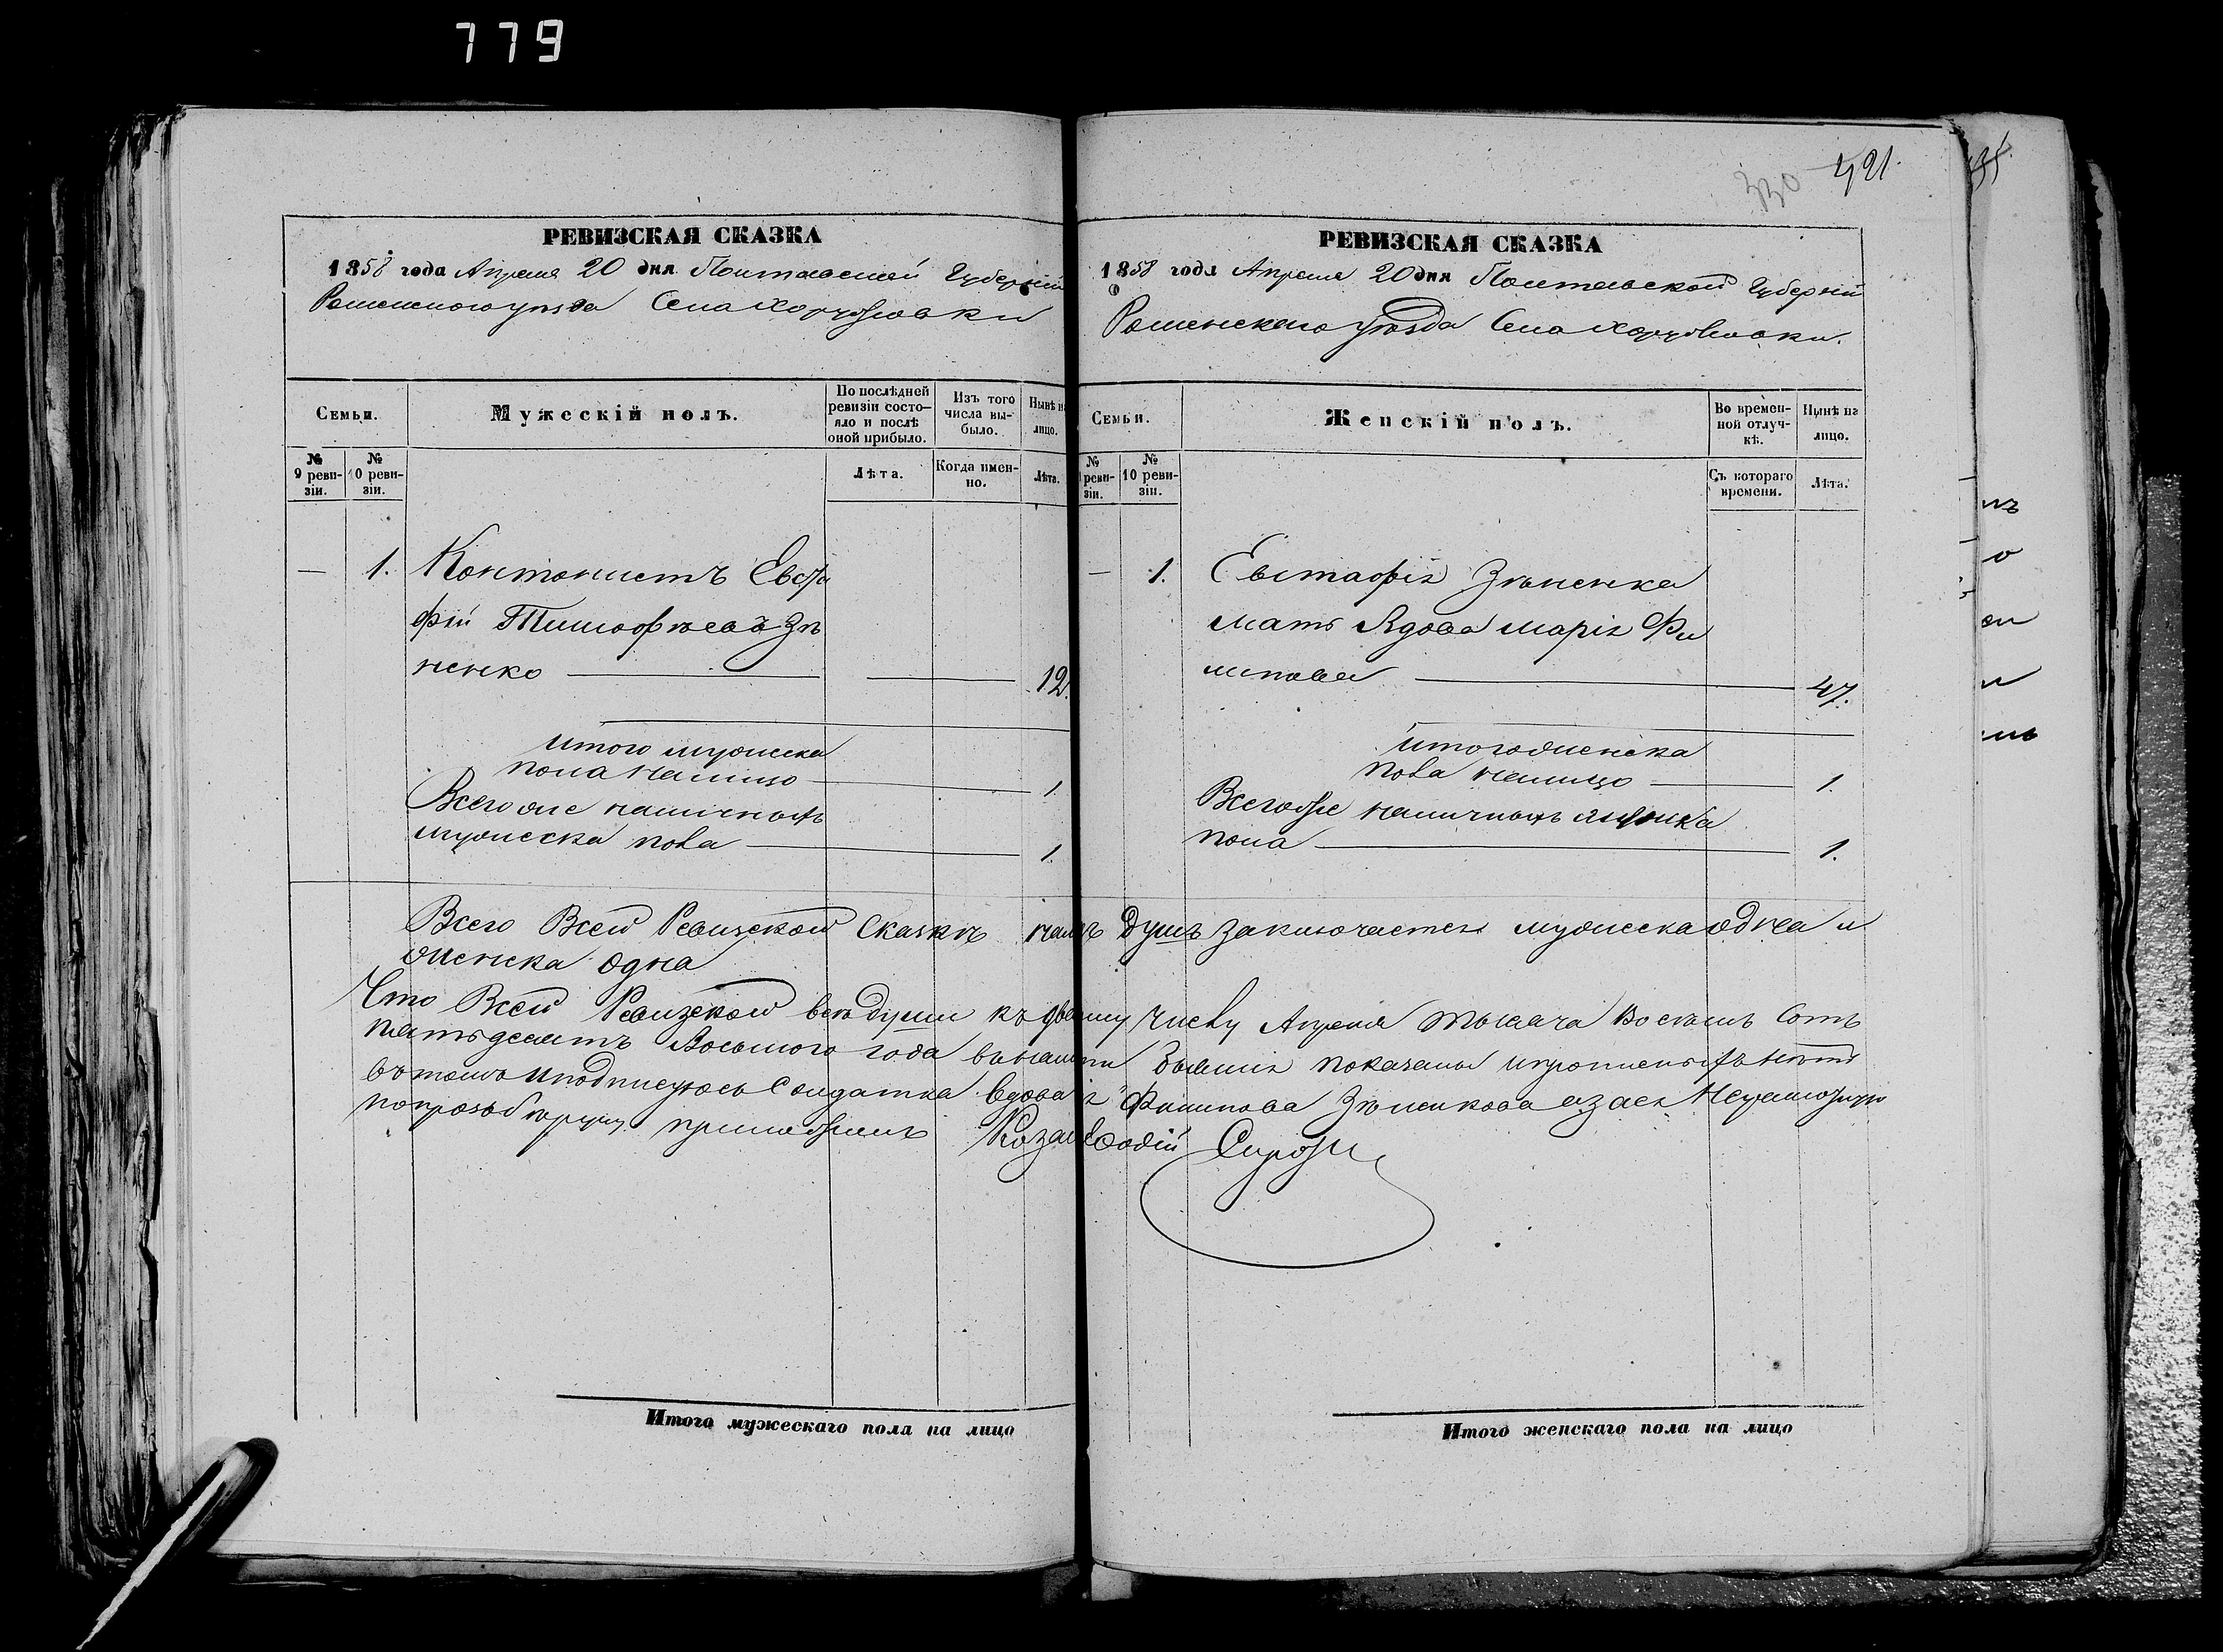 779
330 421.
РЕВИЗСКАЯ СКАЗКА
1858 года Апреля 20 дня Полтавской Губерніи
Роменского уѣзда Села Хоружовки
Семьи.
Мужескій полъ.
По послѣдней ревизіи состояло и послѣ оной прибыло.
Изъ того числа выбыло.
Нынѣ на лицо.
№ 9 ревизіи.
№ 10 ревизіи.
Лѣта.
Когда именно.
Лѣта.
— 1. Контонистъ Евста
фій Тимофѣевъ Зѣ
ненко 12.
Итого мужеска
пола налицо 1.
Всего же наличность
мужеска пола 1.
РЕВИЗСКАЯ СКАЗКА
1858 года Апреля 20 дня Полтавской Губерніи
Роменскаго Уѣзда Села Хоружовки.
Семьи.
Женскій полъ.
Во временной отлучкѣ.
Нынѣ на лицо.
№ ревизіи.
№ 10 ревизіи.
Съ котораго времени.
Лѣта.
— 1. Евстафія Зѣненка
мать Вдова Марія Фи
липова 47.
Итого женска
пола налицо 1.
Всего же наличность женска
пола 1.
Всего Всей Ревизской Сказкѣ душъ заключается мужеска одна и
женска одна
Что Всей Ревизской всѣ души къ числу Апреля тысяча Восемь Сотъ
пятьдесятъ Восьмого года бывшія показаны и прописныхъ нѣтъ
въ томъ и подписуюсь Солдатка вдова Филипова Зѣненкова а за ея Неграмотную
по прозьбѣ руку приложилъ Козакъ
Итого мужескаго пола на лицо
Итого женскаго пола на лицо